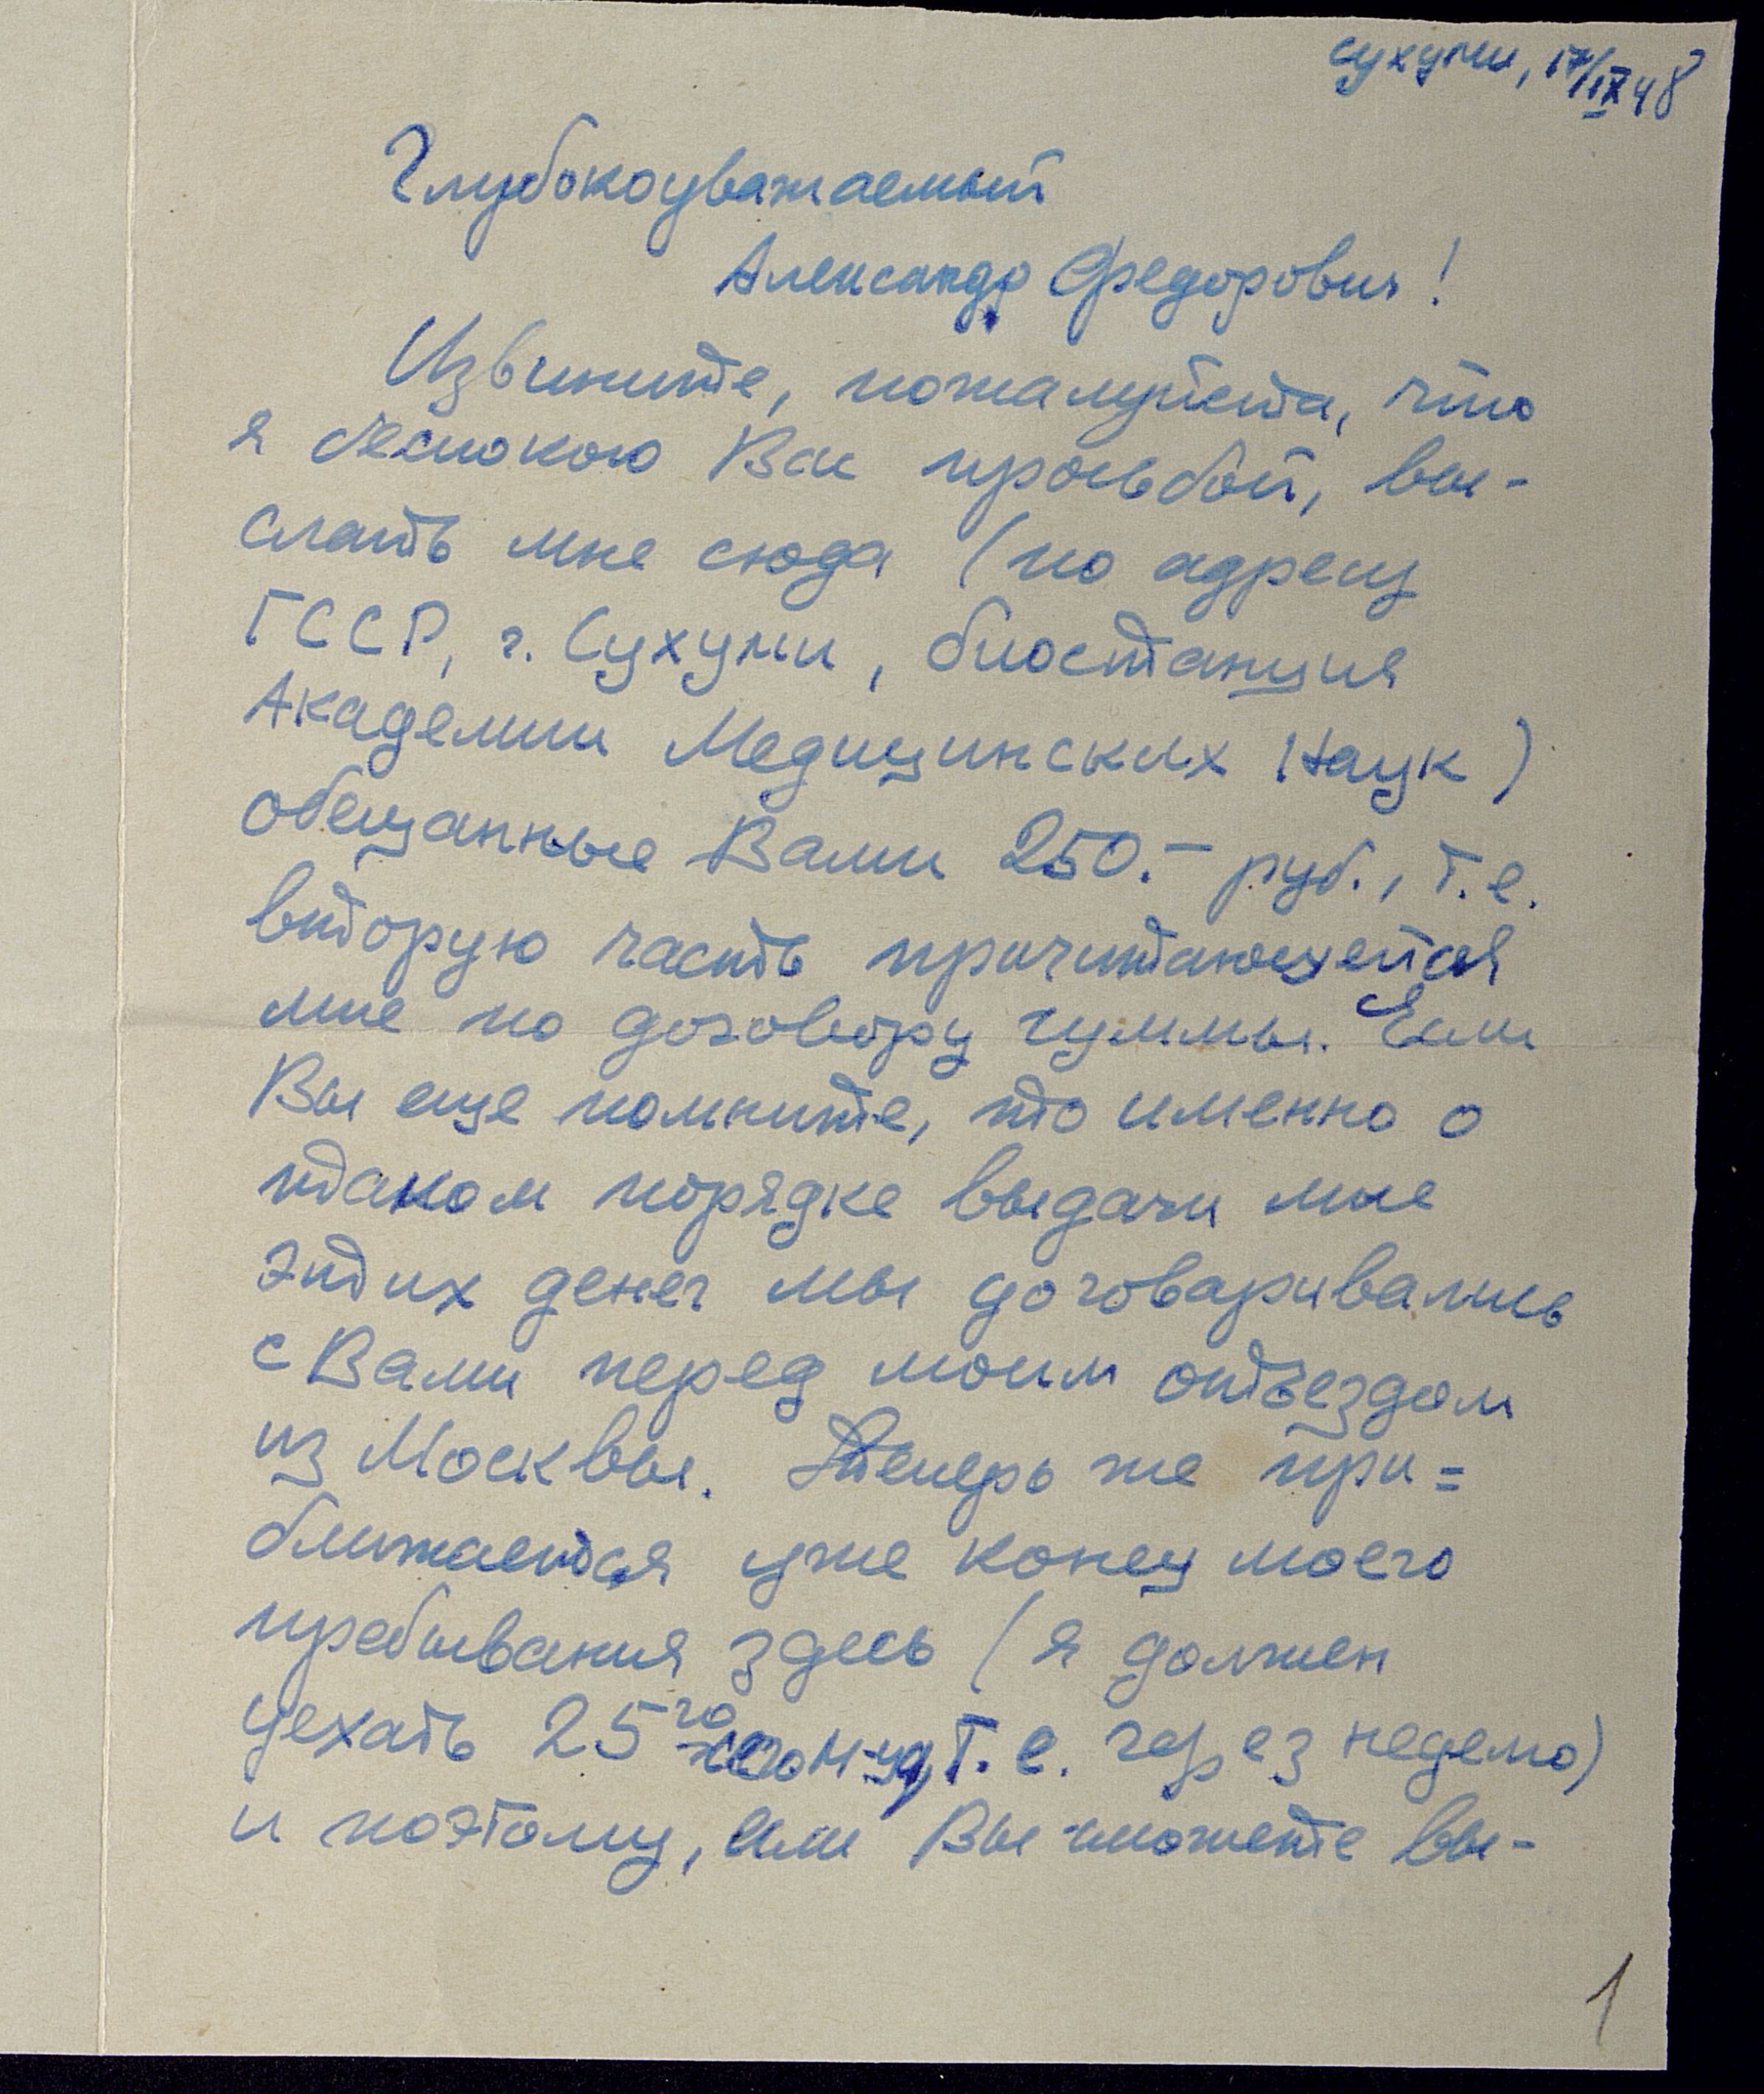 Сухуми, 17/IX 48
Глубокоуважаемый
Александр Федорович!
Извините, пожалуйста, что
я беспокою Вас просьбой, вы-
слать мне сюда (по адресу
ГССР, г. Сухуми, биостанция
Академии Медицинских Наук)
обещанные Вами 250.– руб., т.е.
вторую часть причитающейся
мне по договору суммы. Если
Вы еще помните, то именно о
таком порядке выдачи мне
этих денег мы договаривались
с Вами перед моим отъездом
из Москвы. Теперь же при=
ближается уже конец моего
пребывания здесь (я должен
уехать 25го т. е. через неделю)
и поэтому, если Вы можете вы-
1